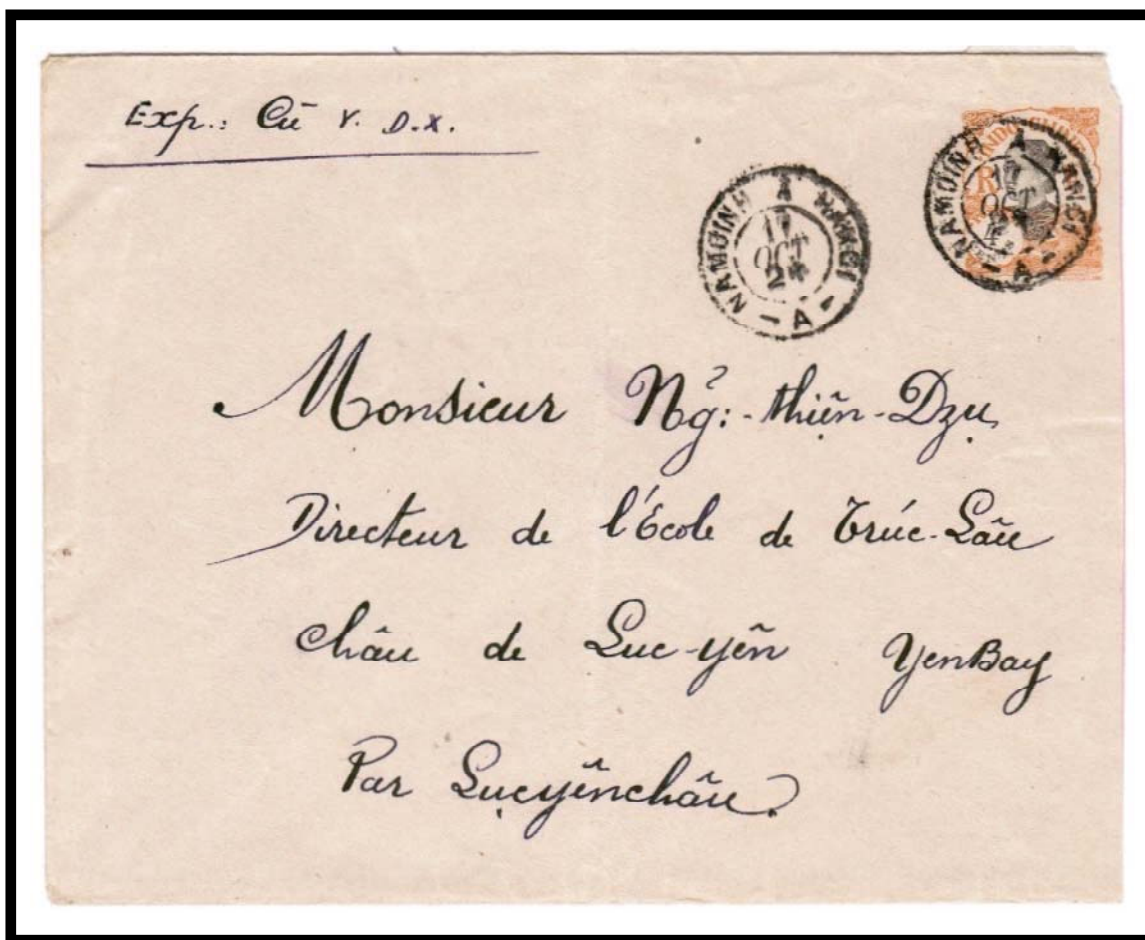 Exp.: Cũ V. D.X.
NAMDINH A HANOI
17
OCT
24
- A -
INDO-CHINE
RF
NAMDINH A HANOI
17
OCT
24
- A -
Monsieur Ng̉: -thiện-Dzụ
Directeur de l'École de Trúc-Lâu
châu de Luc-yên YenBay
Par Lụcyênchâu.